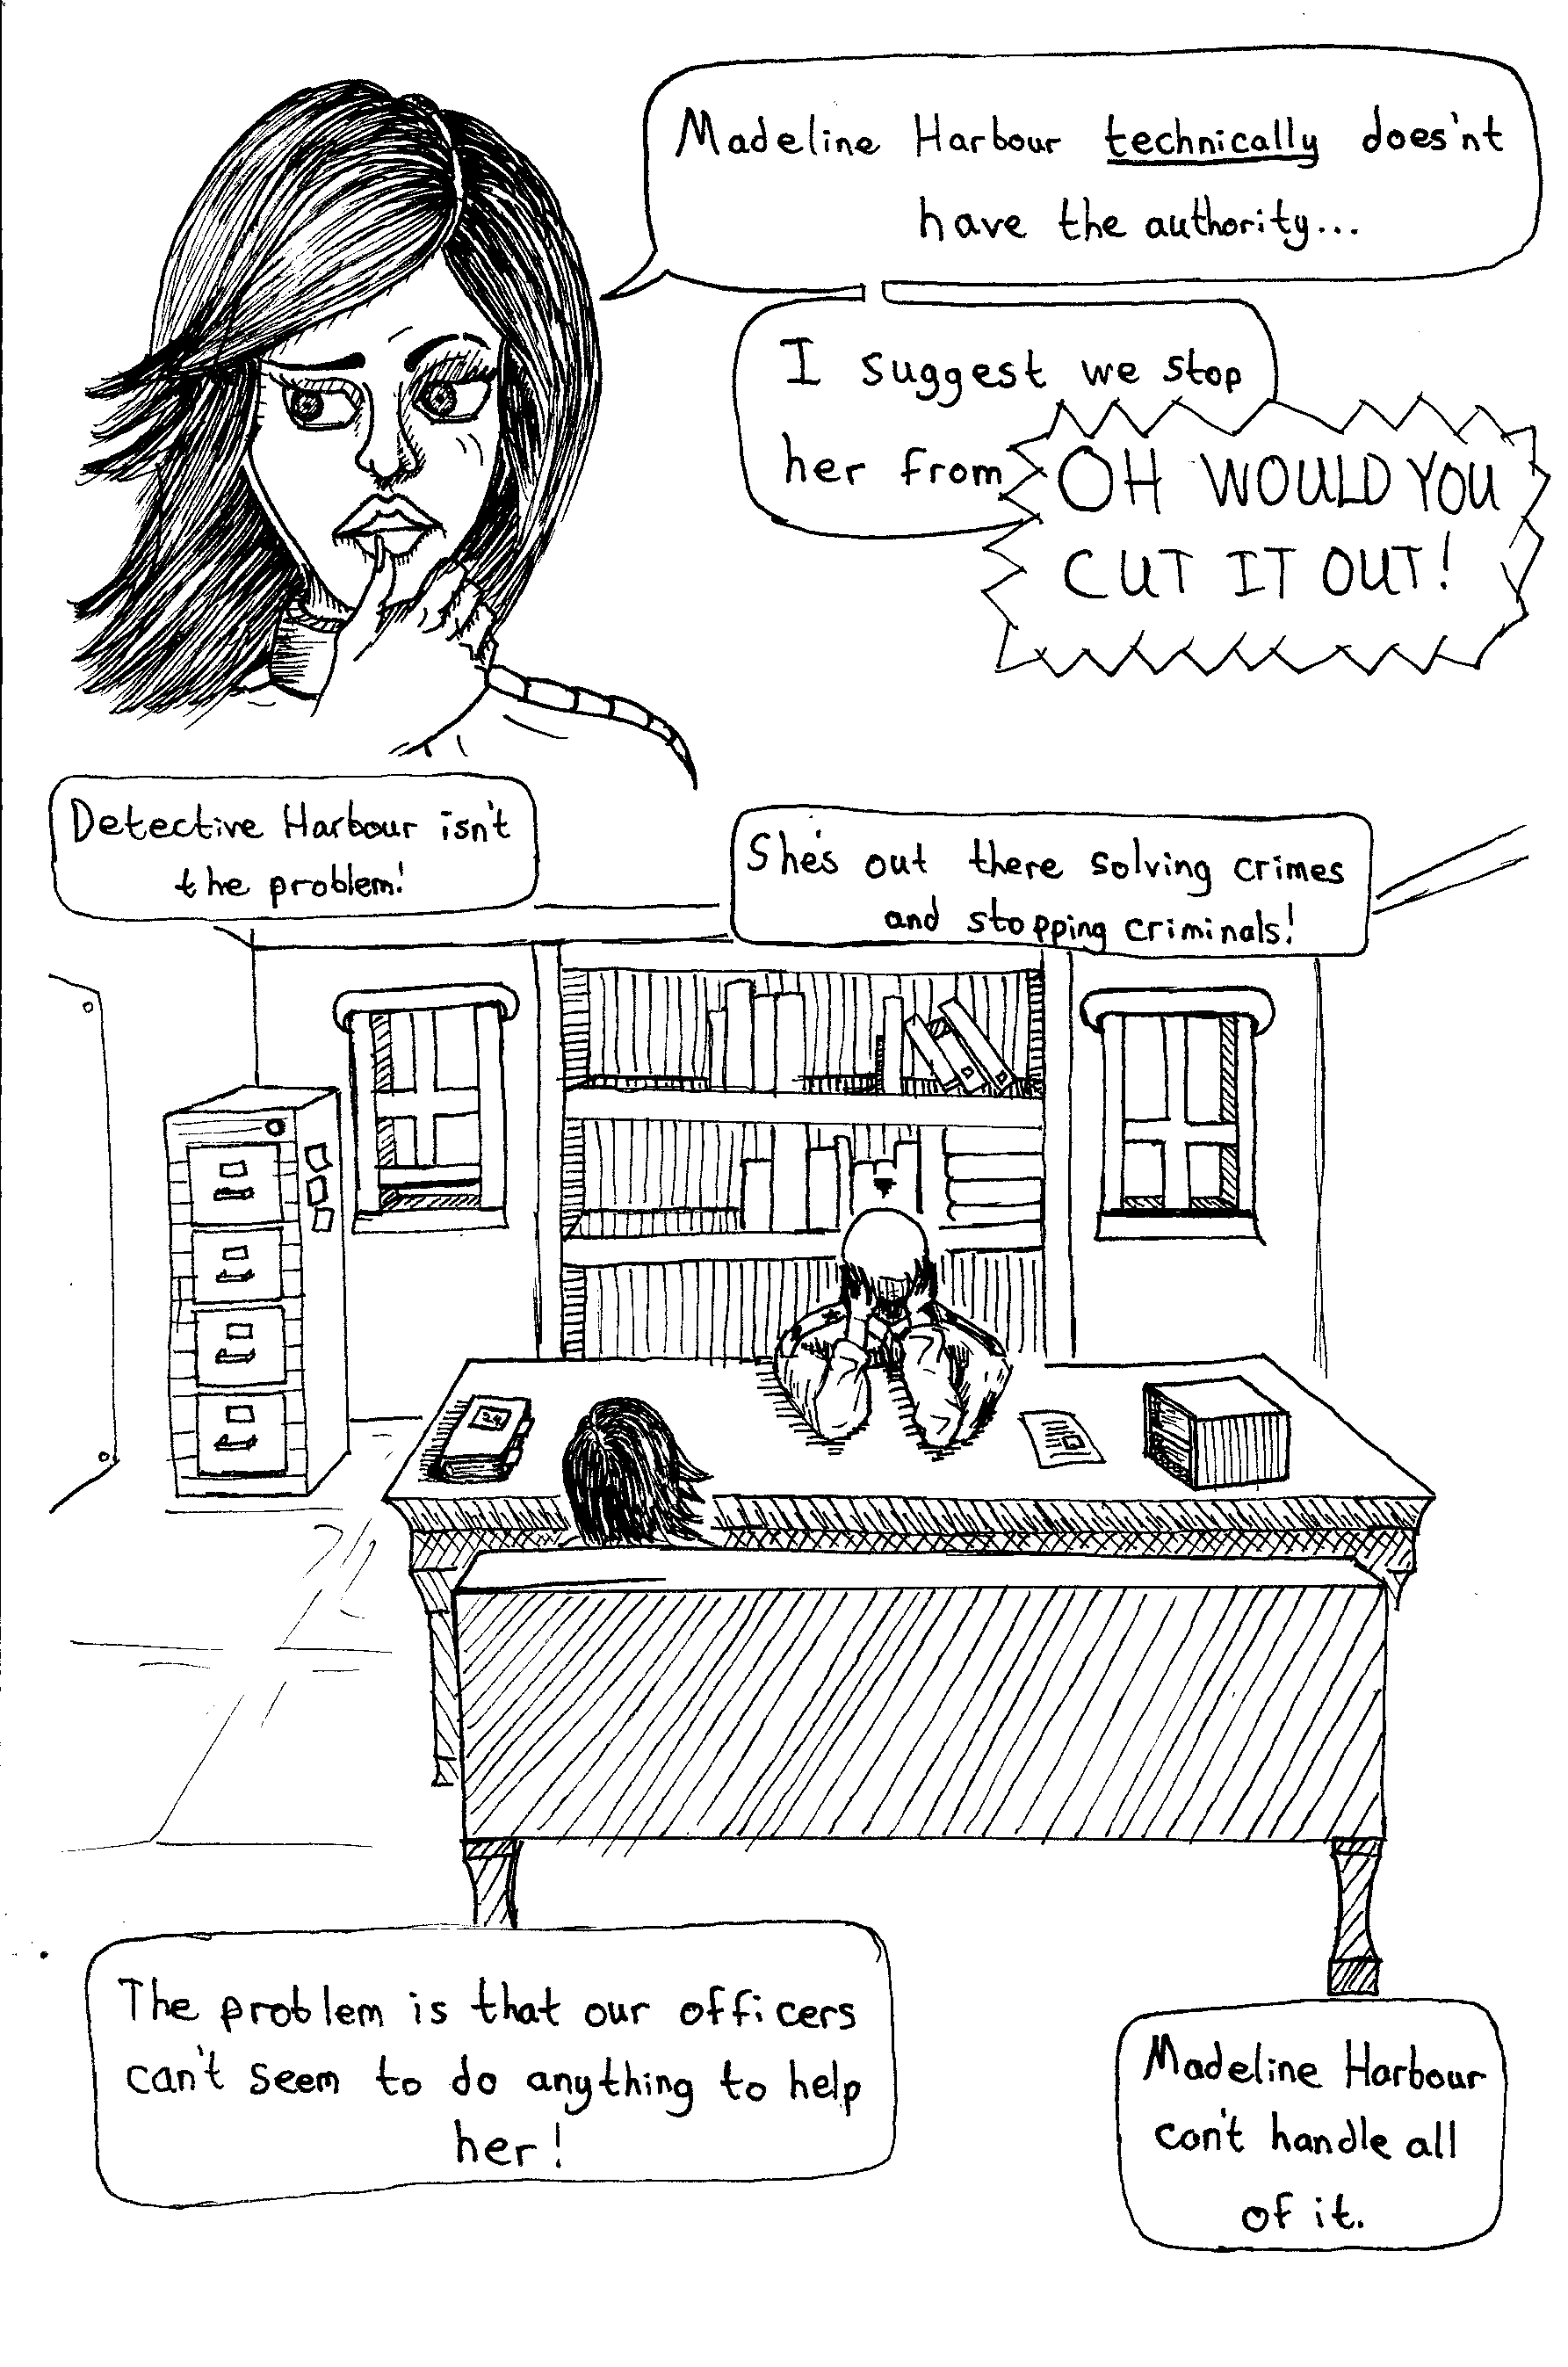 Madeline Harbour technically does'nt
have the authority...
I suggest we stop
her from
OH WOULD YOU
CUT IT OUT!
Detective Harbour isn't
the problem!
She's out there solving crimes
and stopping criminals!
The problem is that our officers
can't seem to do anything to help
her!
Madeline Harbour
can't handle all
of it.